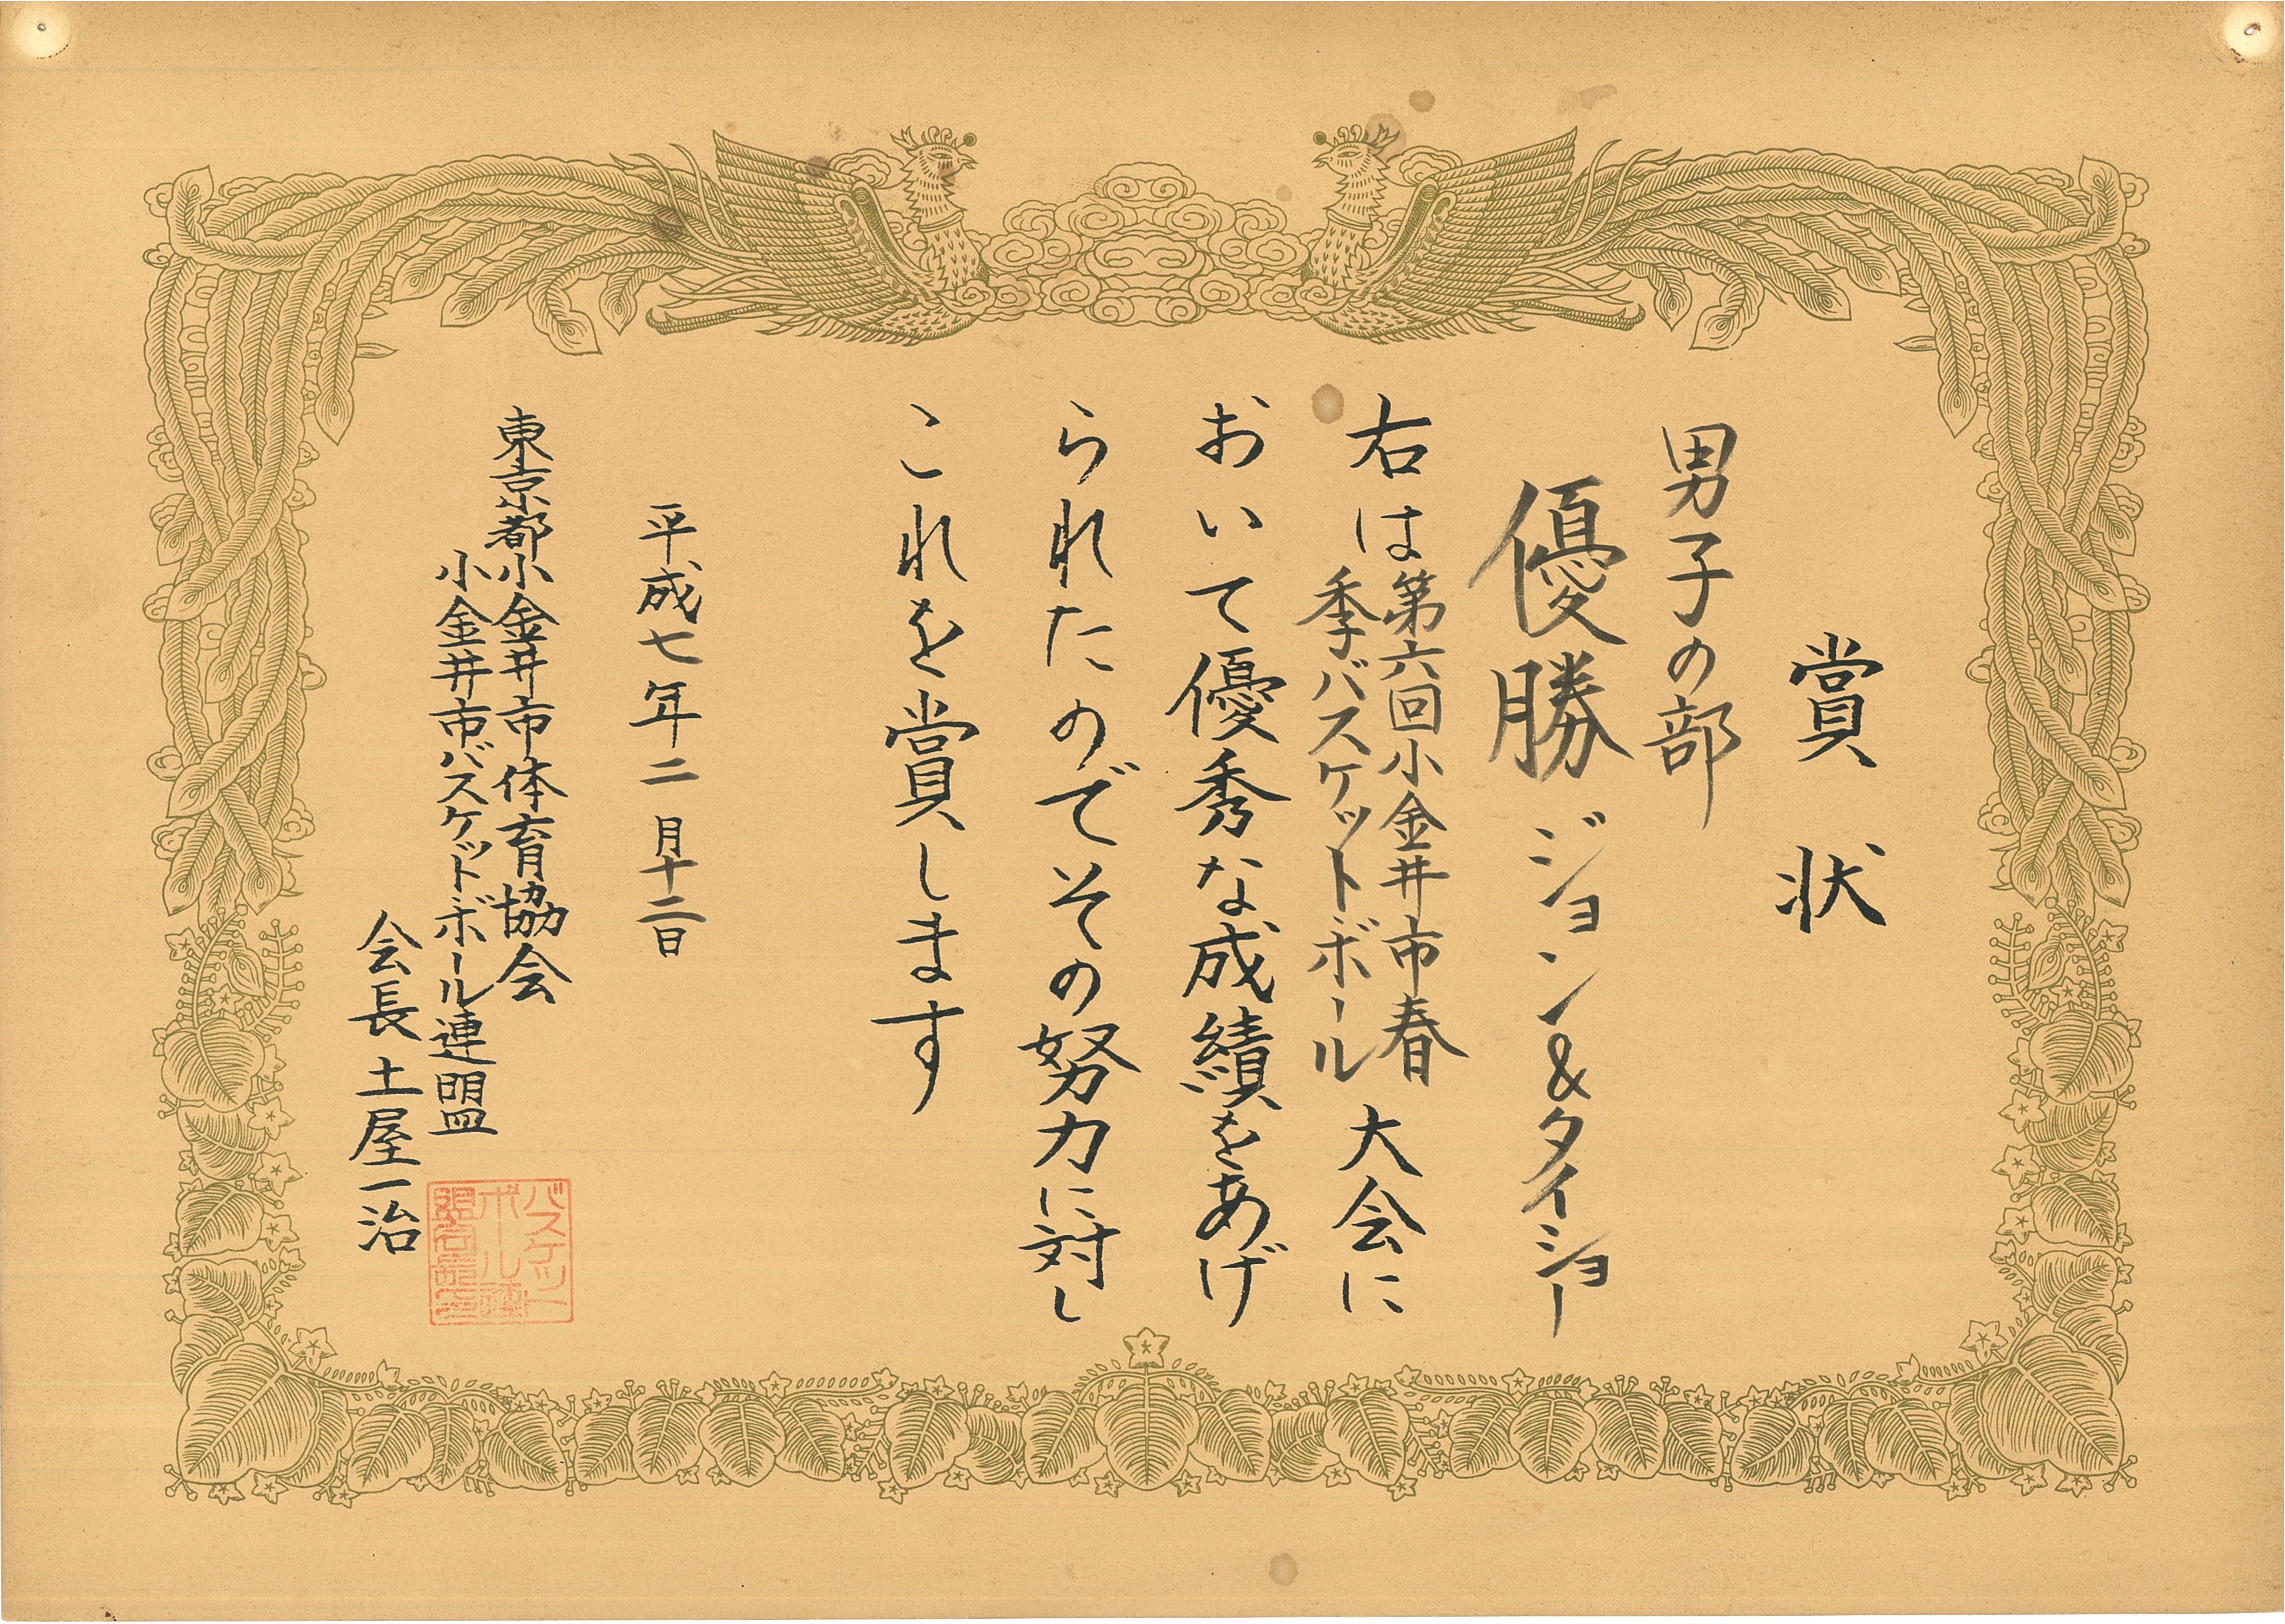 賞状
男子の部
優勝 ジョン&タイショー
右は第六回小金井市春
季バスケットボール
大会に
おいて優秀な成績をあげ
られたのでその努力に対し
これを賞します
平成七年二月十二日
東京都小金井市体育協会
小金井市バスケットボール連盟
会長 土屋一治
バスケット
ボール連